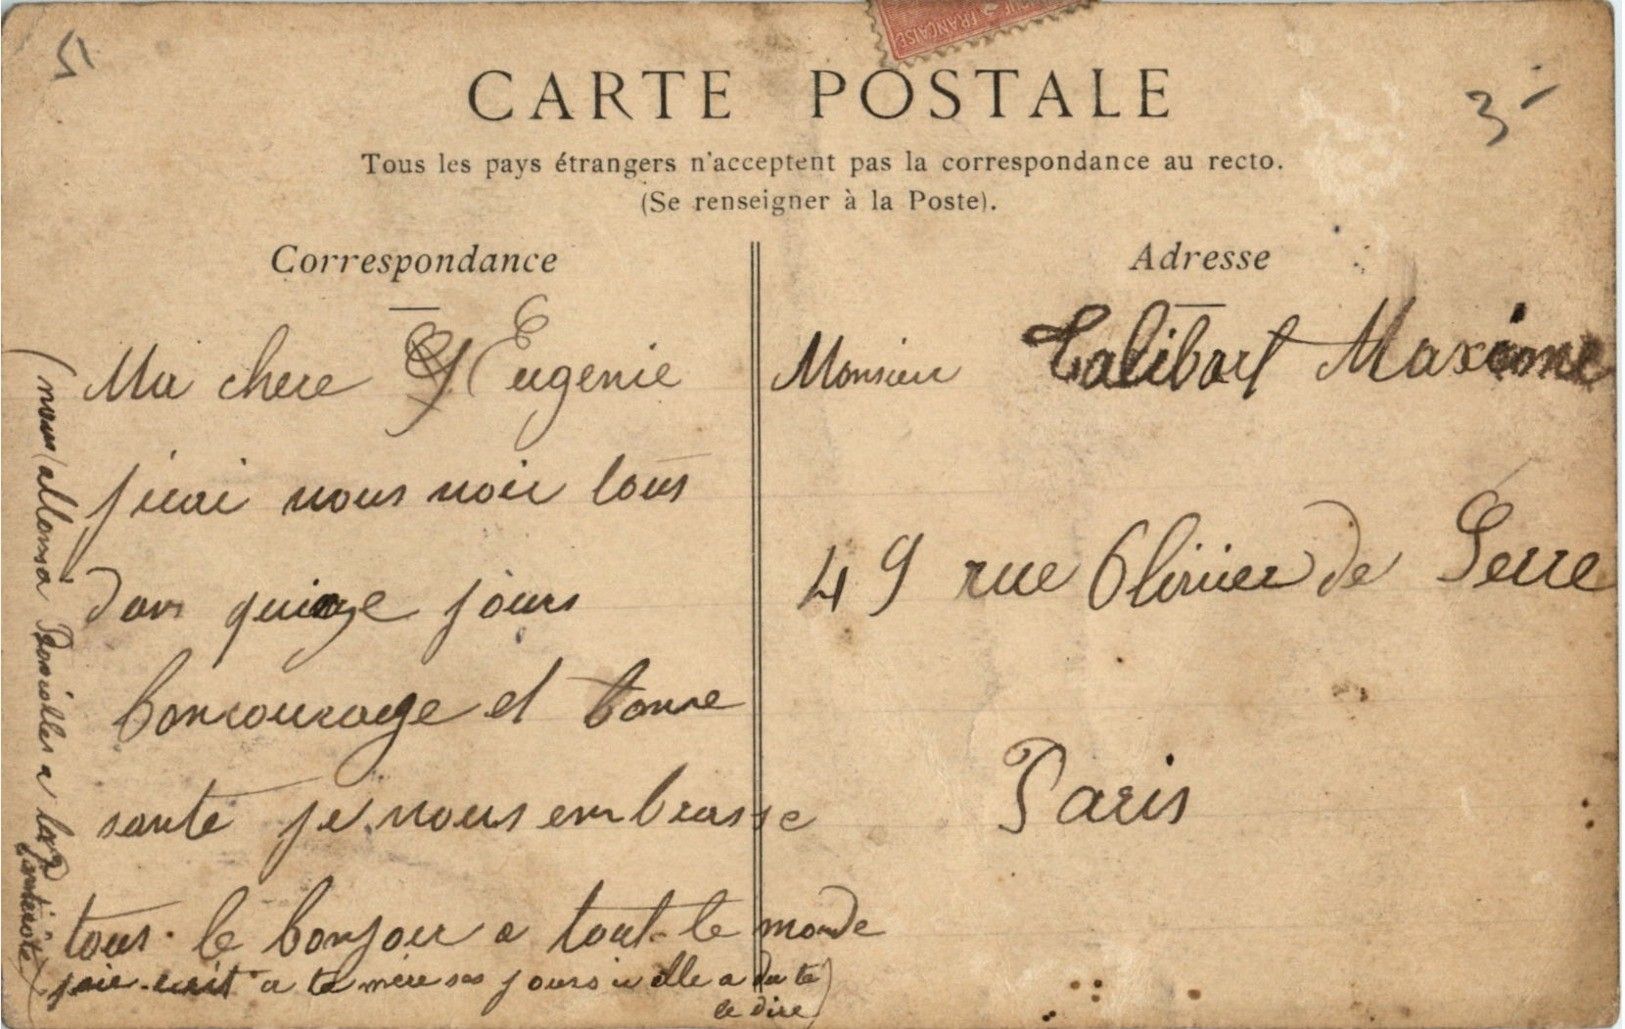 51
FRANÇAISE
CARTE POSTALE
3-
Tous les pays étrangers n'acceptent pas la correspondance au recto.
(Se renseigner à la Poste).
Correspondance
Ma chere Eugenie
jirai vous voir tous
dans quinze jours
bon courage et bonne
santé je vous embrasse
tous. le bonjour a tout-le monde
(jaie ecrit a ta mère ses jours ci elle a du te
le dire)
(nous allons a a la
Adresse
Monsieur Talibart Maxime
49 rue Olivier de Serre
Paris